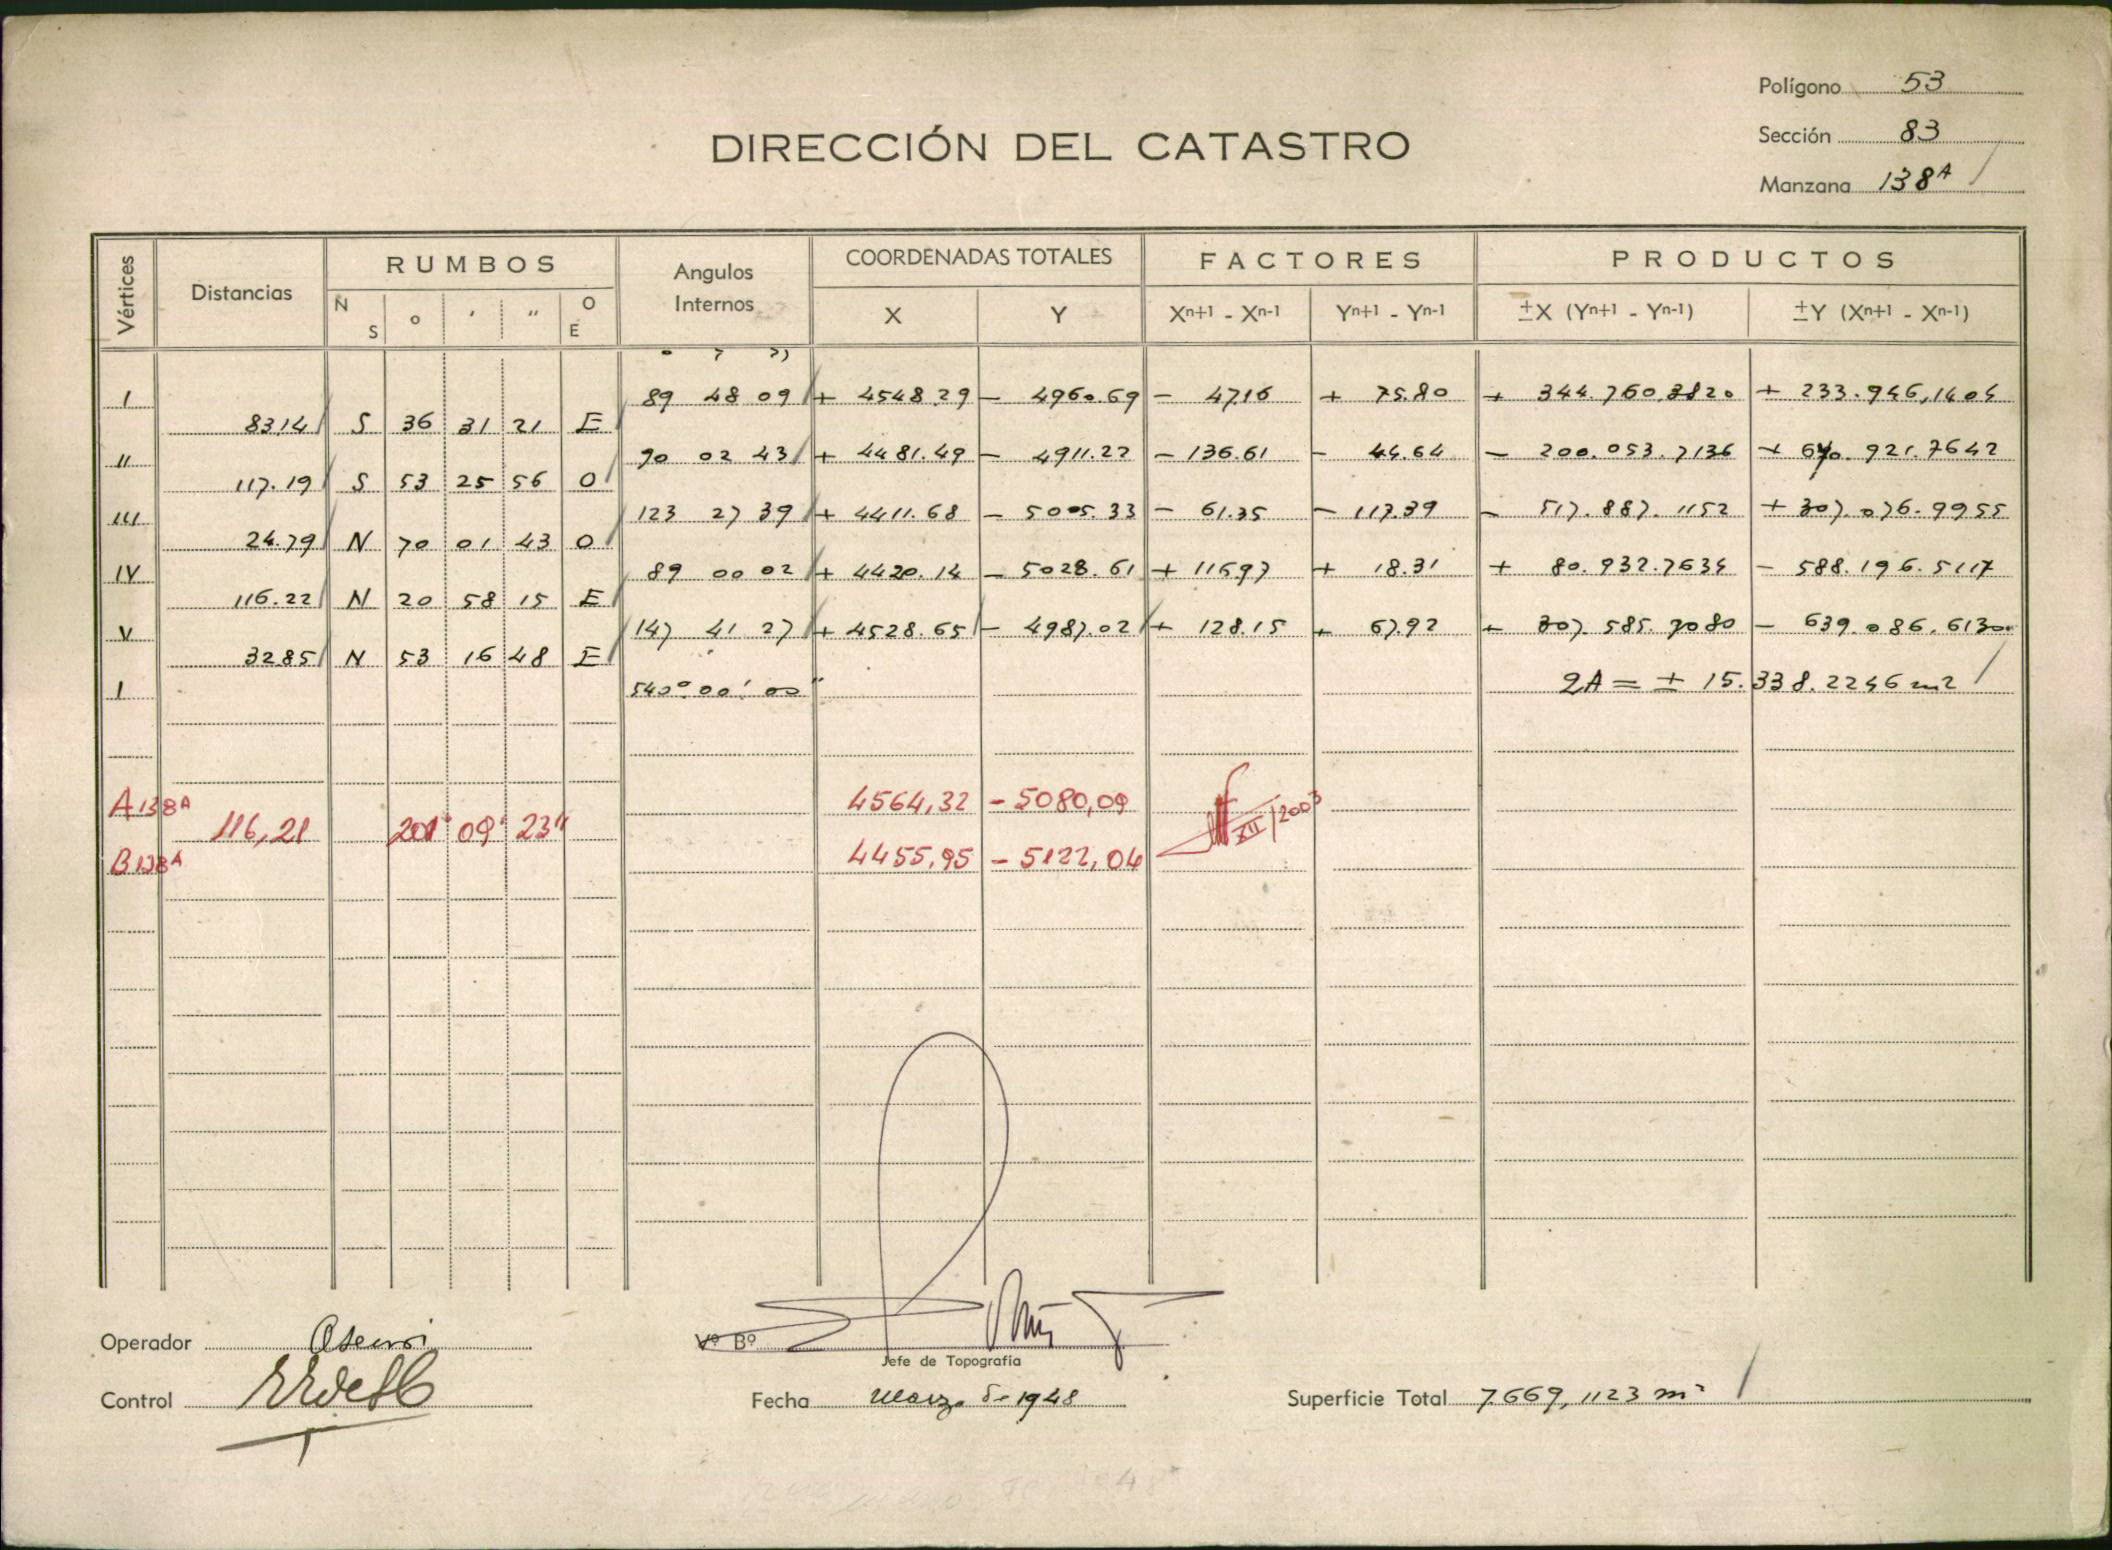 Polígono 53
DIRECCIÓN DEL CATASTRO
Sección 83
Manzana 138A
Vértices Distancias RUMBOS Angulos Internos COORDENADAS TOTALES FACTORES PRODUCTOS
N S o ' " O E X Y Xn+1 - Xn-1 Yn+1 - Yn-1 ±X (Yn+1 - Yn-1) ±Y (Xn+1 - Xn-1)
I 89 48 09 + 4548.29 - 4960.69 - 47.16 + 75.80 + 344.760.3820 + 233.946,1404
83.14 S 36 31 21 E
II 90 02 43 + 4481.49 - 4911.22 - 136.61 - 44.64 - 200.053.7136 + 670.921.7642
117.19 S 53 25 56 O
III 123 27 39 + 4411.68 - 5005.33 - 61.35 - 117.39 - 517.887.1152 + 307.076.9955
24.79 N 70 01 43 O
IV 89 00 02 + 4420.14 - 5028.61 + 116.97 + 18.31 + 80.932.7634 - 588.196.5117
116.22 N 20 58 15 E
V 147 41 27 + 4528.65 - 4987.02 + 128.15 + 67.92 + 307.585.9080 - 639.086.6130
32.85 N 53 16 48 E
I 540° 00' 00" 2A = ± 15.338.2246 m2
A138A 4564,32 - 5080,09
116,21 201° 09' 23" XII/2003
B138A 4455,95 - 5122,04
Operador Asensi
Vº Bº
Jefe de Topografía
Control
Fecha Marzo de 1948
Superficie Total 7.669,1123 m²